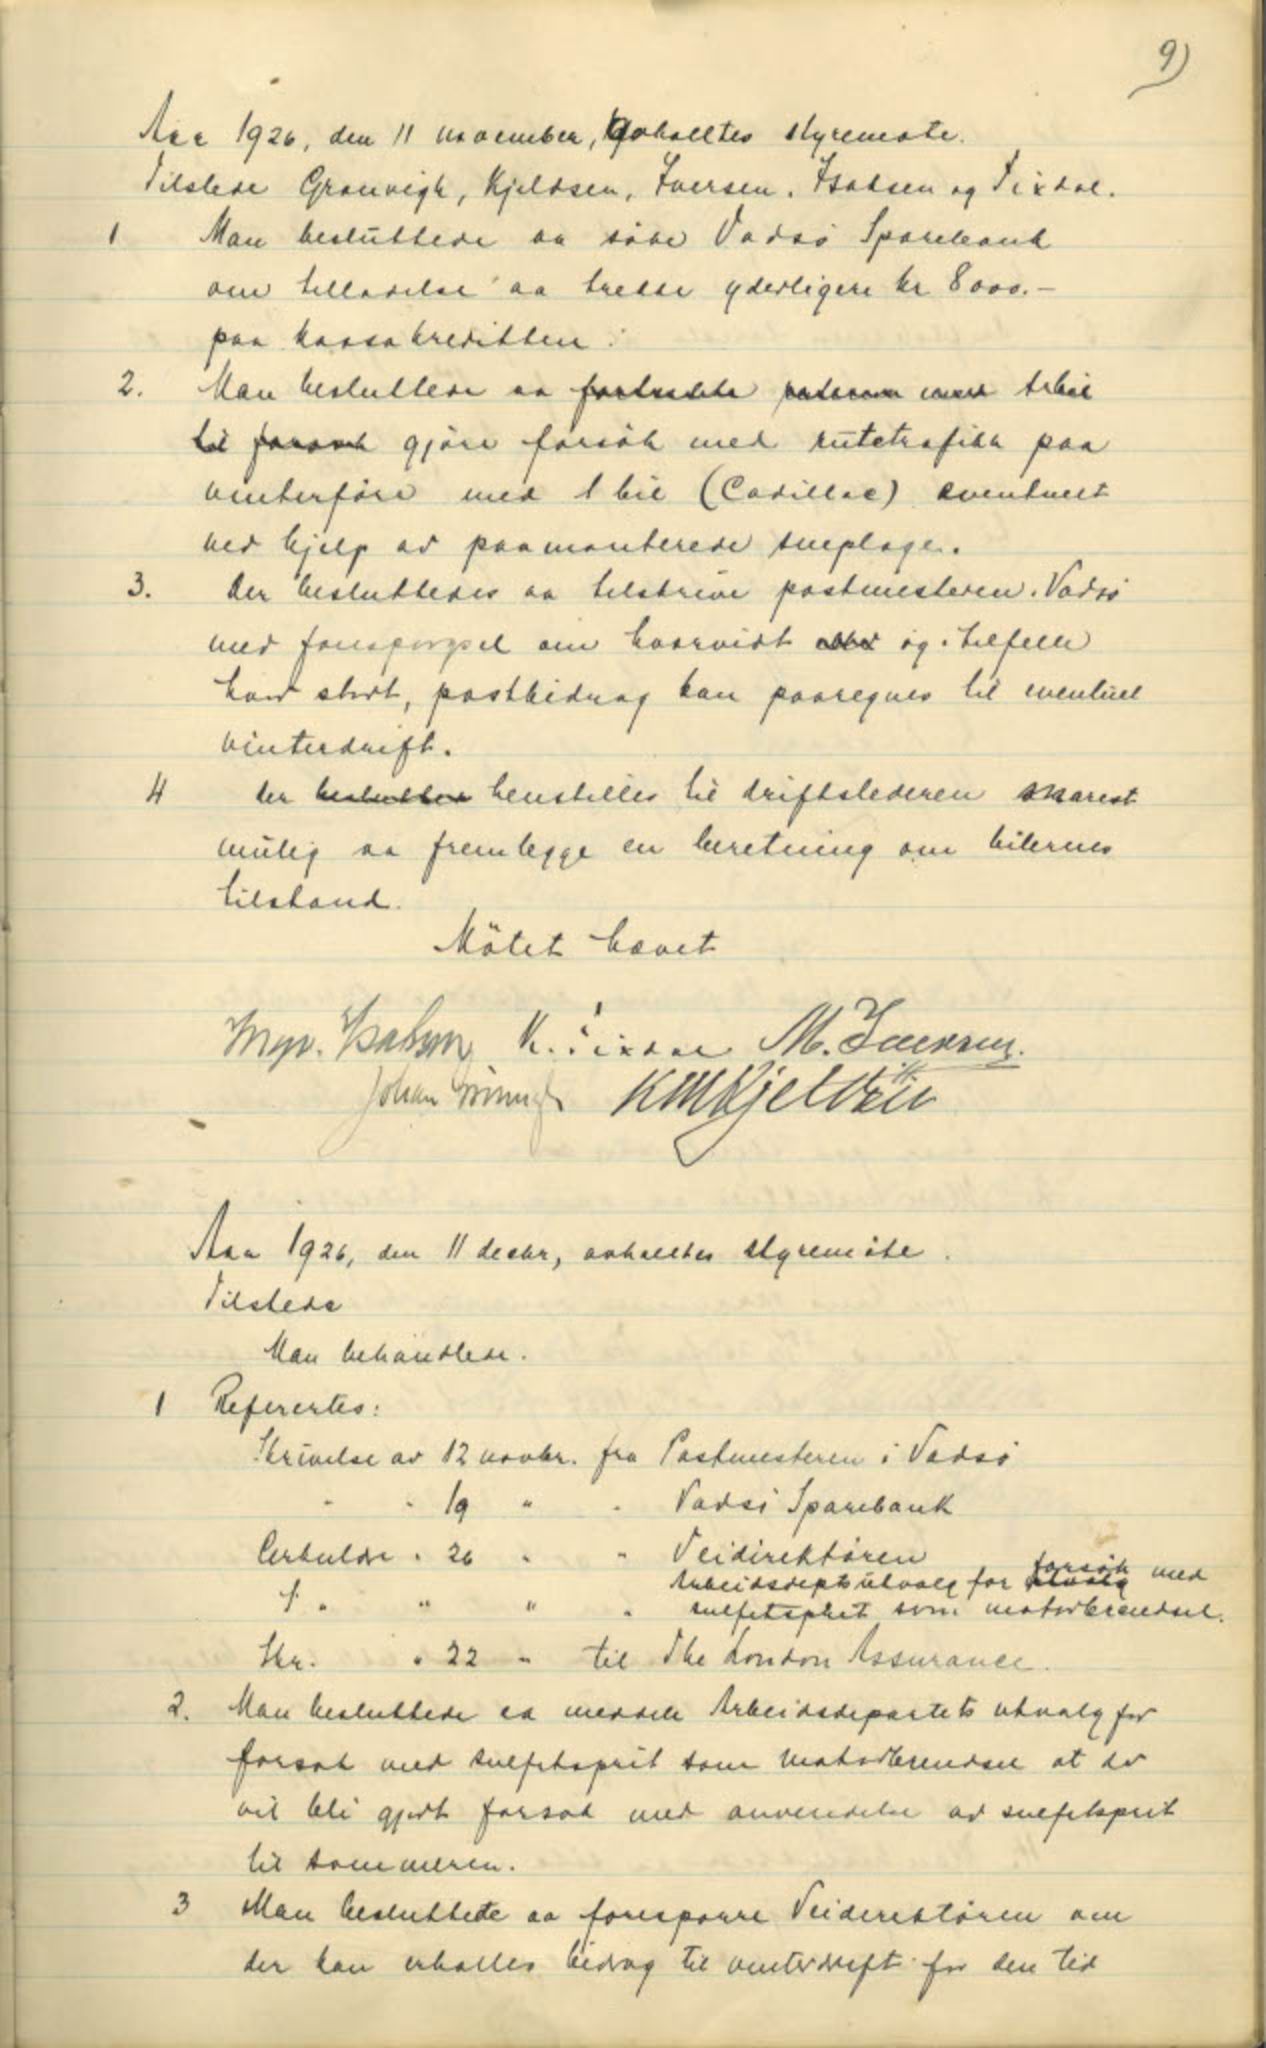 9)
Aar 1926, den 11 november, avholdtes styremøte.
Tilstede Gronvigh, Kjeldsen, Iversen, Isaksen og Tixdal.
1 Man besluttede aa søke Vadsø Sparebank
om tilladelse aa trekke yderligere kr 8000.-
paa kassakreditten.
2. Man besluttede aa fortsætte med 1 bil
til forsøk gjøre forsøk med rutetrafikk paa
vinterføre med 1 bil (Cadillac) eventuelt
ved hjelp av paamonterede sneploge.
3. Der besluttedes aa tilskrive postmesteren i Vadsø
med forespørgsel om hvorvidt og i tilfelle
hvor stort, postbidrag kan paaregnes til eventuel
vinterdrift.
4 Der besluttes henstilles til driftslederen snarest
mulig aa fremlegge en beretning om bilernes
tilstand.
Møtet hævet
Ingv. Isaksen K. Tixdal M. Iversen.
Johan KM Kjeldsen
Aar 1926, den 11 decbr, avholdtes styremøte.
Tilstede
Man behandlede.
1 Referertes:
Skrivelse av 12 novbr. fra Postmesteren i Vadsø
" " 19 " " Vadsø Sparebank
Cirkulære " 26 " " Veidirektøren
" " " " Arbeidsdepts utvalg for utvalg forsøk med
sulfitsprit som motorbrendsel.
Skr. " 22 " til The London Assurance.
2. Man besluttede aa meddele Arbeidsdepartets utvalg for
forsøk med sulfitsprit som motorbrendsel at der
vil bli gjort forsøk med anvendelse av sulfitsprit
til sommeren.
3 Man besluttede aa forespørre Veidirektøren om
der kan erholdes bidrag til vinterdrift for den tid